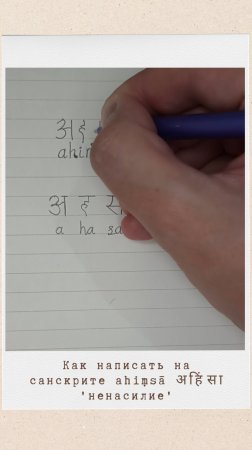 अ ह
ahiṃ
अ ह स
a ha sa
Как написать на
санскрите ahiṃsā अहिंसा
'ненасилие'